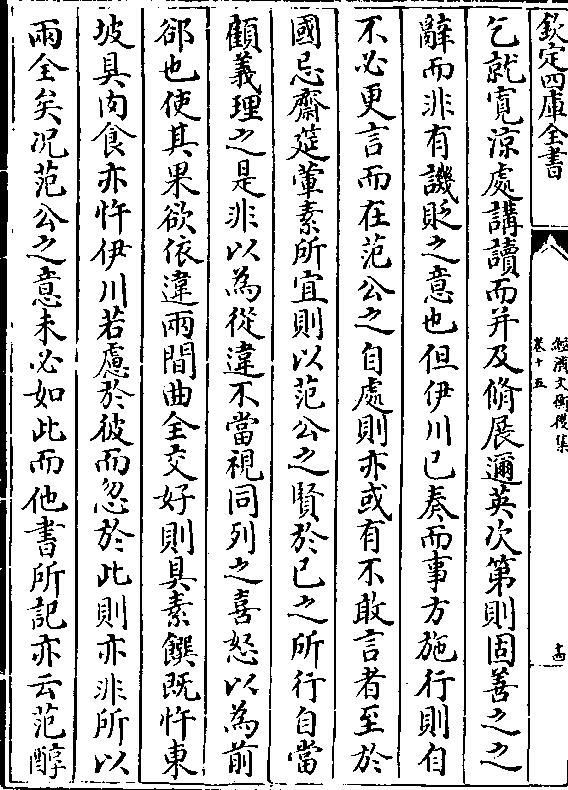 欽定四庫全書
經濟文衡後集
卷十五
十四
乞就寛涼處講讀而并及脩展邇英次第則固善之之
辭而非有譏貶之意也但伊川已奏而事方施行則自
不必更言而在范公之自處則亦或有不敢言者至於
國忌齋筵葷素所宜則以范公之賢於已之所行自當
顧義理之是非以為從違不當視同列之喜怒以為前
郤也使其果欲依違兩間曲全交好則具素饌既忤東
坡具肉食亦忤伊川若慮於彼而忽於此則亦非所以
兩全矣况范公之意未必如此而他書所記亦云范醇